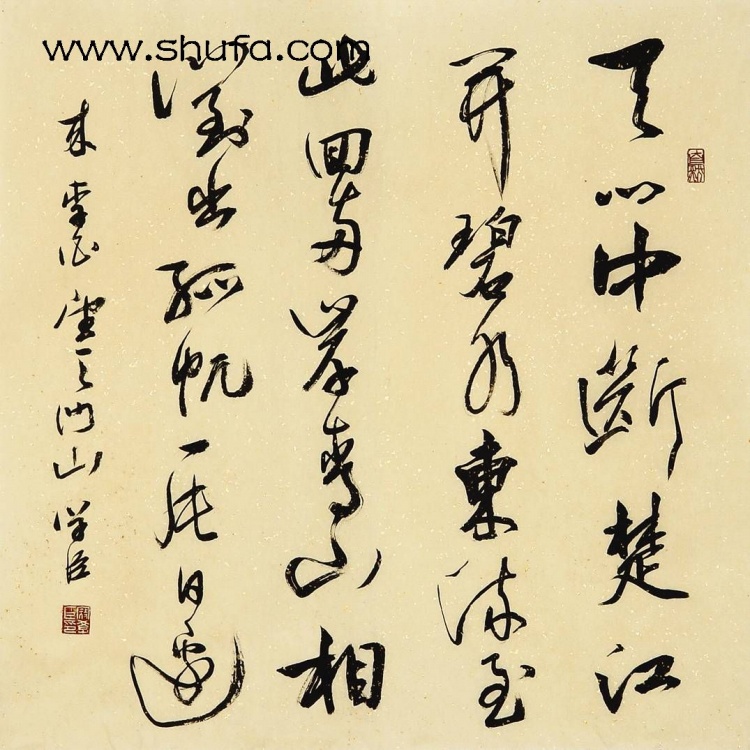 www.shufa.com
天門中斷楚江
开碧水東流至
此回兩岸青山相
對出孤帆一片日邊
来 李白望天門山 学臣